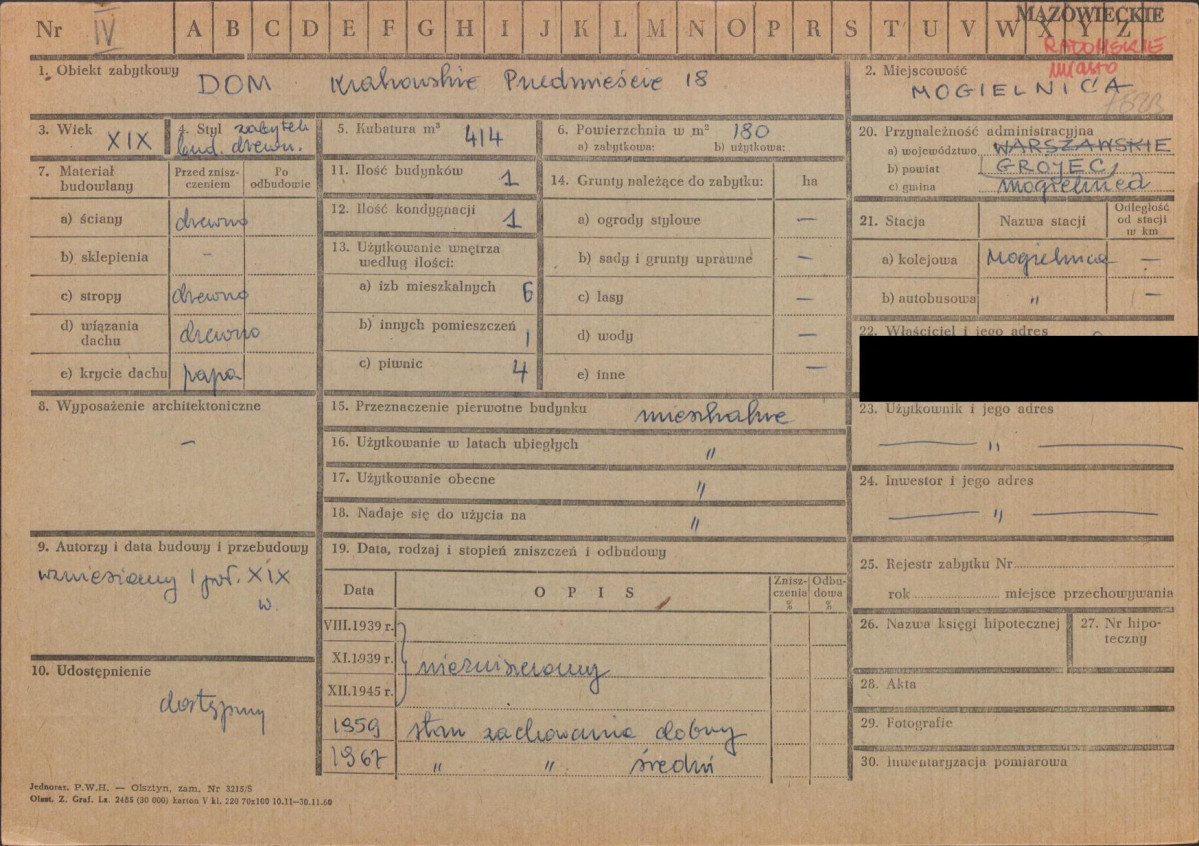 Nr IV A B C D E F G H I J K L M N O P R S T U V W X Y Z
MAZOWIECKIE
RADOMSKIE
miasto
1. Obiekt zabytkowy DOM Krakowskie Przedmieście 18
2. Miejscowość
MOGIELNICA
3. Wiek XIX
4. Styl zabytek
bud. drewn.
5. Kubatura m³ 414
6. Powierzchnia w m² 180
a) zabytkowa: b) użytkowa:
20. Przynależność administracyjna
a) województwo WARSZAWSKIE
b) powiat GRÓJEC,
c) gmina Mogielnica
7. Materiał budowlany
Przed znisz-
czeniem
Po
odbudowie
a) ściany drewno
b) sklepienia –
c) stropy drewno
d) wiązania
dachu drewno
e) krycie dachu papa
11. Ilość budynków 1
12. Ilość kondygnacji 1
13. Użytkowanie wnętrza
według ilości:
a) izb mieszkalnych 6
b) innych pomieszczeń 1
c) piwnic 4
14. Grunty należące do zabytku: ha
a) ogrody stylowe –
b) sady i grunty uprawne –
c) lasy –
d) wody –
e) inne –
21. Stacja Nazwa stacji Odległość
od stacji
w km
a) kolejowa Mogielnica –
b) autobusowa " –
22. Właściciel i jego adres
8. Wyposażenie architektoniczne
–
15. Przeznaczenie pierwotne budynku mieszkalne
16. Użytkowanie w latach ubiegłych "
17. Użytkowanie obecne "
18. Nadaje się do użycia na "
23. Użytkownik i jego adres
— " —
24. Inwestor i jego adres
— " —
9. Autorzy i data budowy i przebudowy
wzniesiony I poł. XIX
w.
10. Udostępnienie
dostępny
19. Data, rodzaj i stopień zniszczeń i odbudowy
Data OPIS Znisz-
czenia
%
Odbu-
dowa
%
VIII.1939 r.
XI.1939 r. niezniszczony
XII.1945 r.
1959 stan zachowania dobry
1967 " " średni
25. Rejestr zabytku Nr
rok miejsce przechowywania
26. Nazwa księgi hipotecznej
27. Nr hipo-
teczny
28. Akta
29. Fotografie
30. Inwentaryzacja pomiarowa
Jednoraz. P.W.H. — Olsztyn, zam. Nr 3215/S
Olszt. Z. Graf. Lz. 2485 (30 000) karton V kl. 220 70x100 10.11—30.11.60